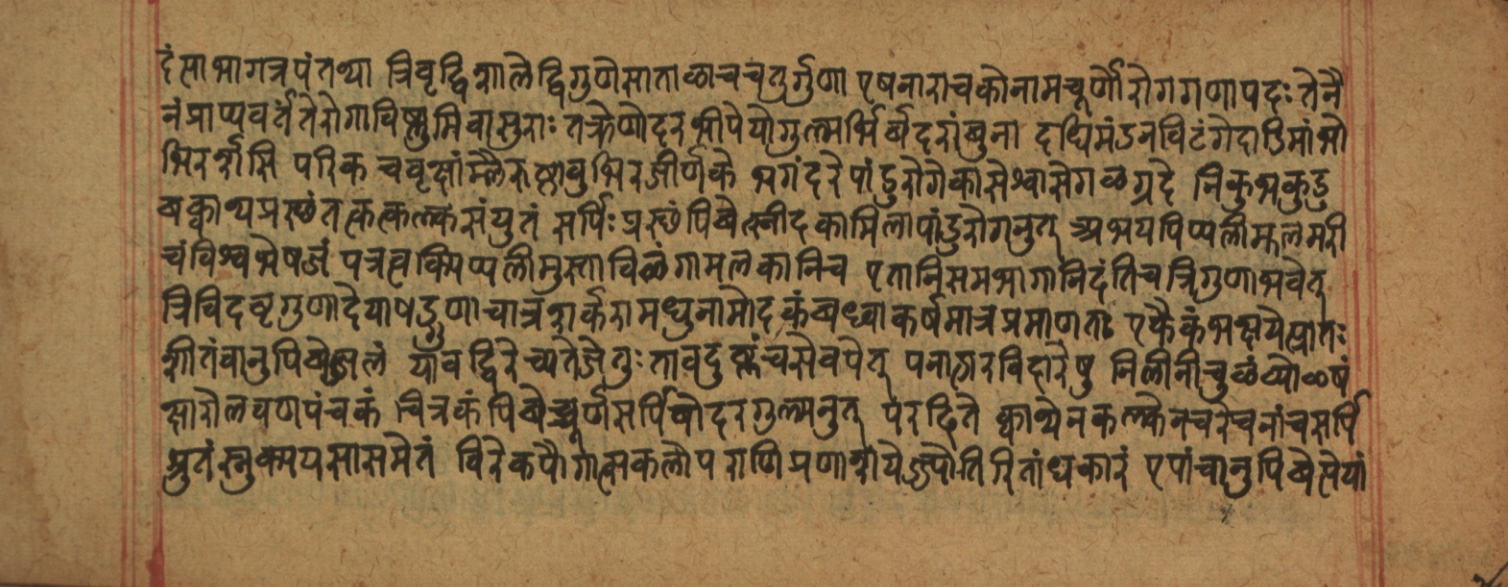 दंत्साभागत्रपंतथा त्रिवृद्विशालेद्विगुणेसाताळाचचतुर्गुणा एषनाराचकोनामचूर्णोरोगगणापदः तेनै
नंप्राप्यवर्जतेरोगाविष्णुमिवासुराः तक्रेणोदरभीपेयोगुल्मर्भिर्बदरांबुना दधिमंडनविटंगेदाडिमांभो
भिरर्शसि परिकचवृक्षांम्लैरुष्णांबुभिरजीर्णके भगंदरेपांडुरोगेकासेश्वासेगळग्रहे निकुभकुडु
बक्वाथप्रस्छंतत्कत्कल्कसंयुतं सर्पिःप्रस्छंपिबेत्स्नीदकामिलापांडुरोगनुत् अभयपिप्पलीमूलमरी
चंविश्वभेषजं पत्रत्वक्पिप्पलीमुस्ताविळंगामलकानिच एतानिसमभागानिदंतिचत्रिगुणाभवेत्
त्रिविदवृगुणादेयाषड्गुणाचात्रशर्करा मधुनामोदकंबध्वाकर्षमात्रप्रमाणतः एकैकंभक्षयेत्प्रातः
शीतंवानुपिबेज्जलं यावद्विरेच्यतेजेतुः तावदुष्णंचसेवयेत् पनाहारविहारेषु निलीनीचुळंब्योळषं
क्षारौलवणपंचकं चित्रकंपिबेच्चूर्णसर्पिषोदरगुल्मनुत् परहिते क्वाथेनकल्केनचरेचनांचसर्पि
श्रुतंस्नुक्पयसासमेतं विरेकपौगात्सकलोपराणिप्रणाशयेज्योतिरितांधकारं एषांचानुपिबेत्सेयां